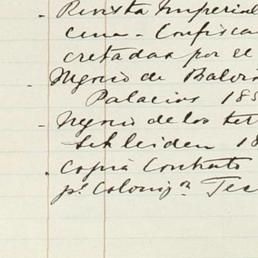 - Revista Imperial
cena - Confisca
cretadas por el
Negocio de
Palacios 185
- Negocio de los ter
Schleiden 18
- copia Contrato
pª Colonizⁿ Tes